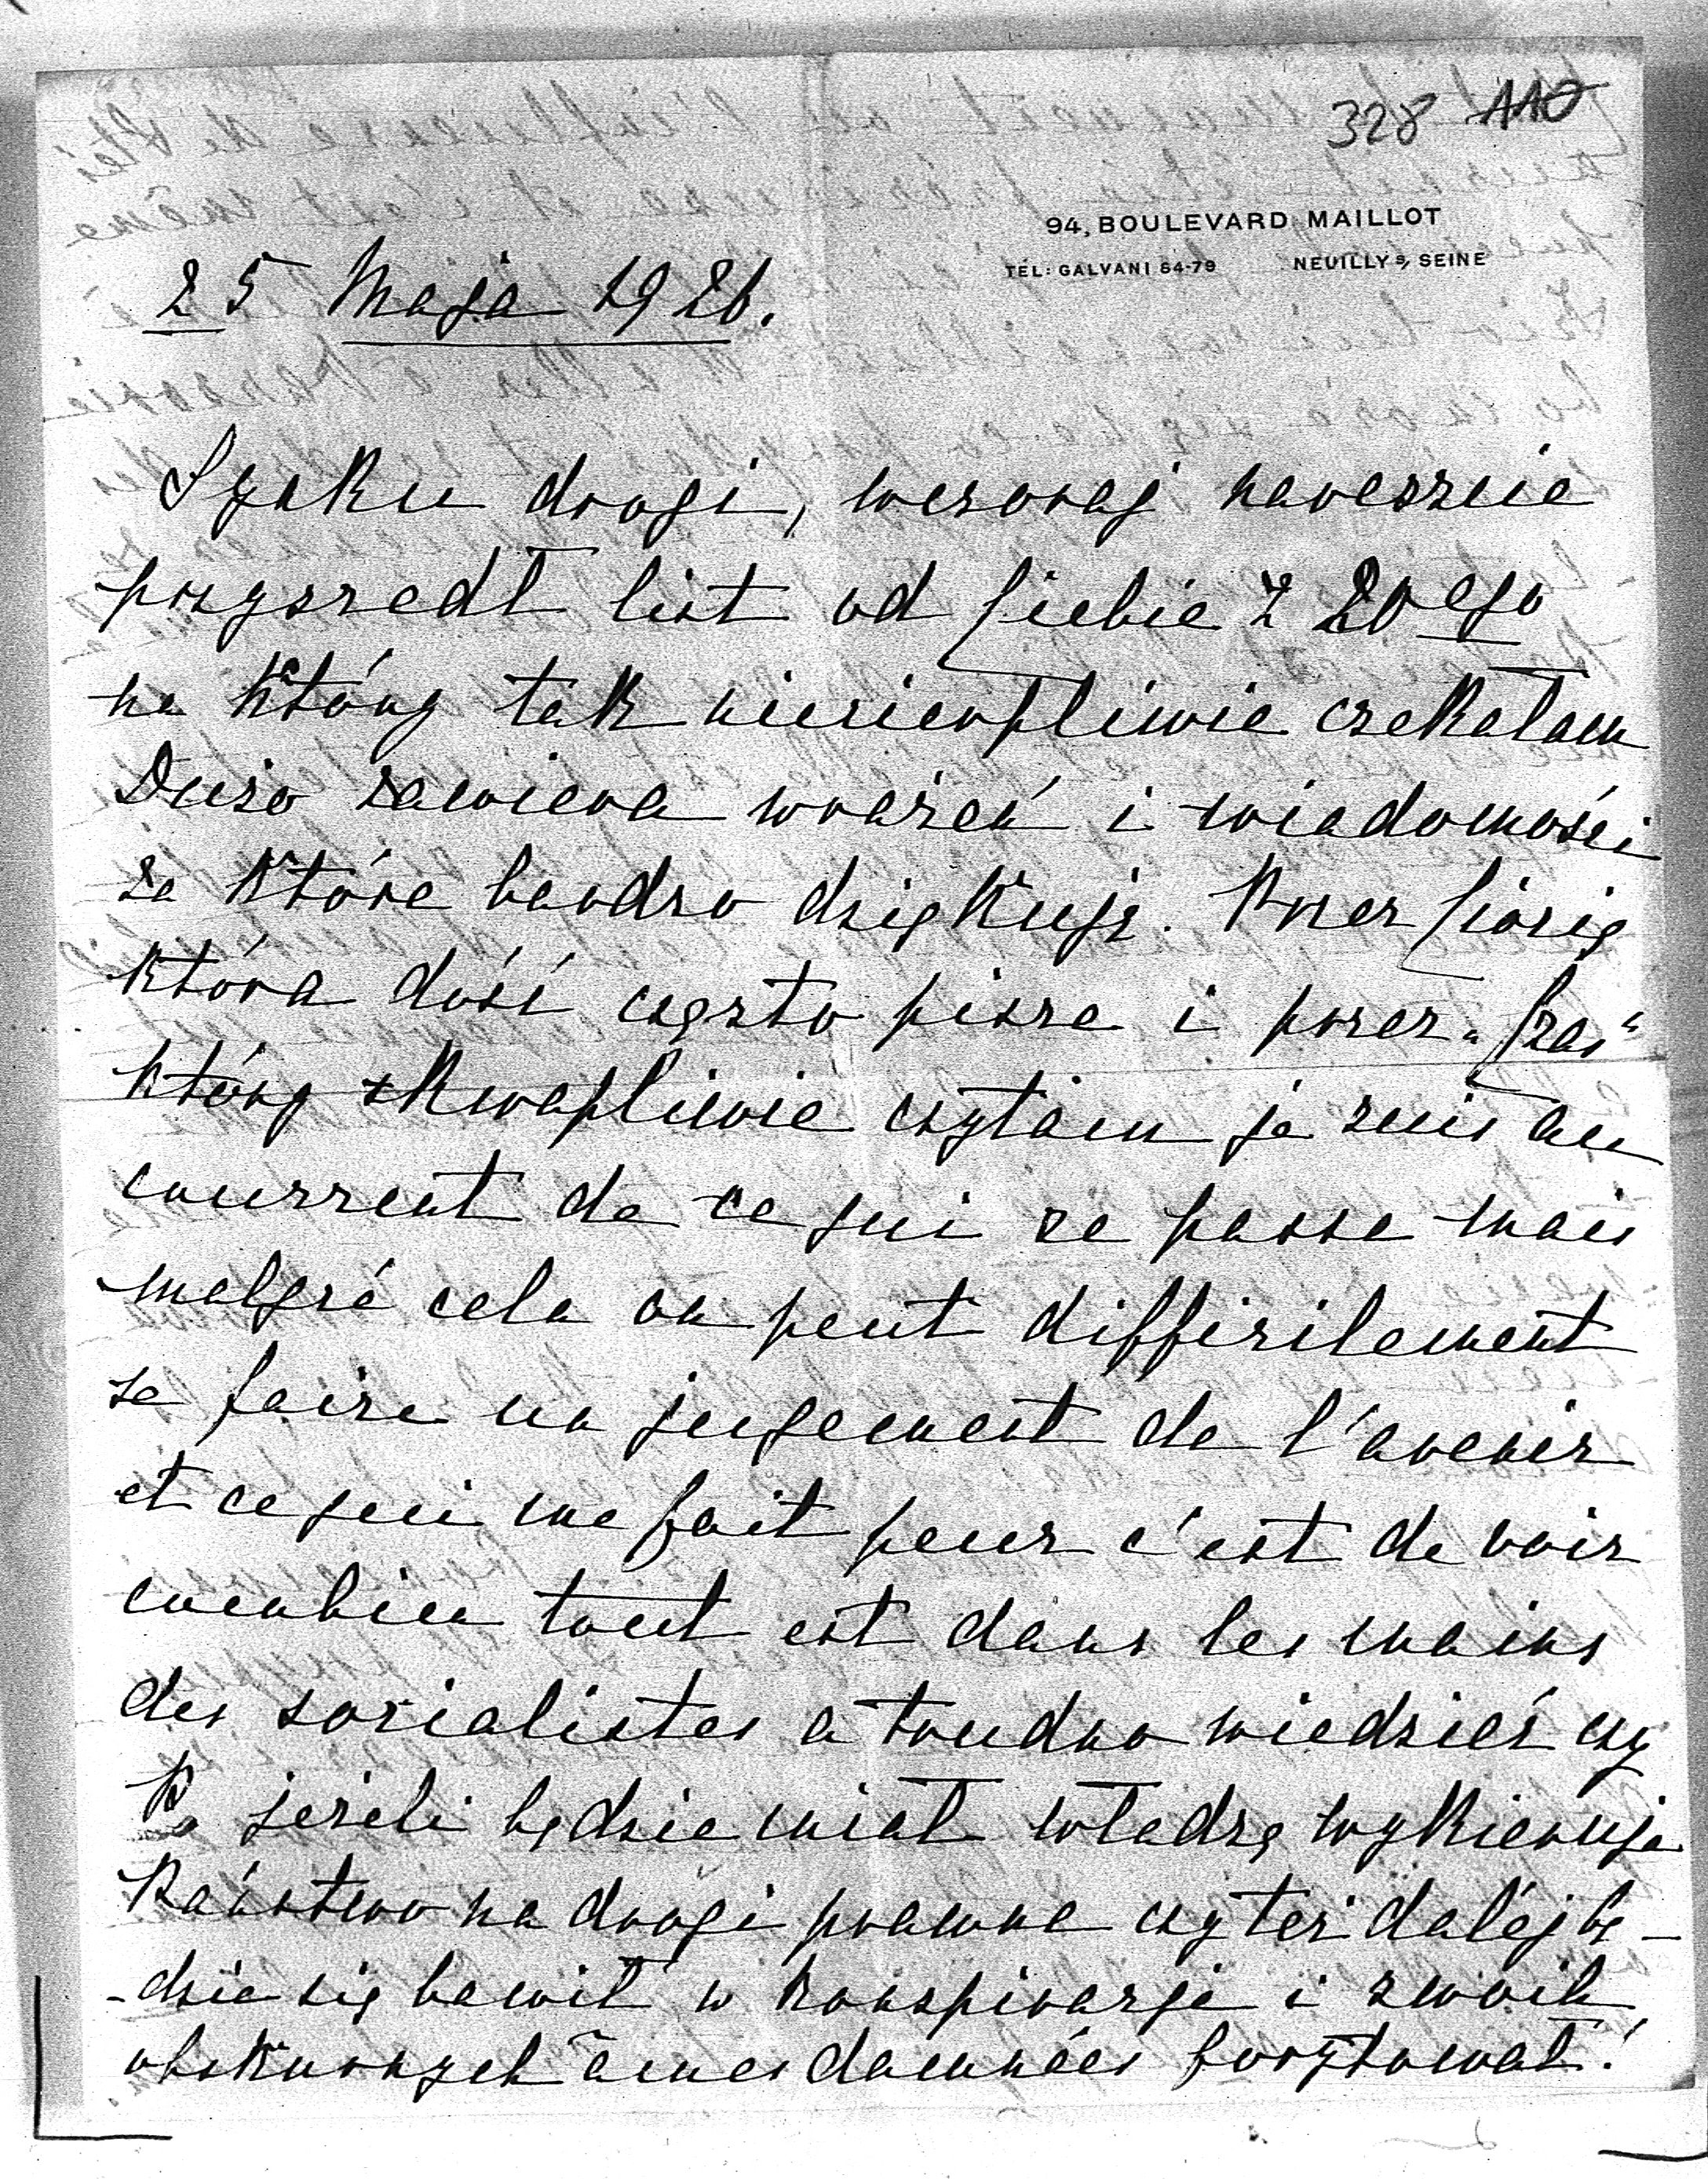 328 110
94, BOULEVARD MAILLOT
TÉL: GALVANI 64-79 NEUILLY S/ SEINE
25 Maja 1926.
Szaku drogi, wczoraj nareszcie
przyszedł list od Ciebie z 20ego
na który tak niecierpliwie czekałam
Dużo zawiera wrażeń i wiadomości
za które bardzo dziękuję. Przez Ciocię
która dość często pisze i przez "Czas"
który skwapliwie czytam je suis au
courrent de ce qui se passe mais
malgré cela on peut difficilement
se faire un jugement de l'avenir
et ce qui me fait peur c'est de voir
combien tout est dans les mains
des socialistes a trudno wiedzieć czy
P. jeżeli będzie miał władzę wykieruje
Państwo na drogi prawne czy też daléj bę-
-dzie się bawił w konspiracje i swoich
obskurnych âmes damnées forytował!